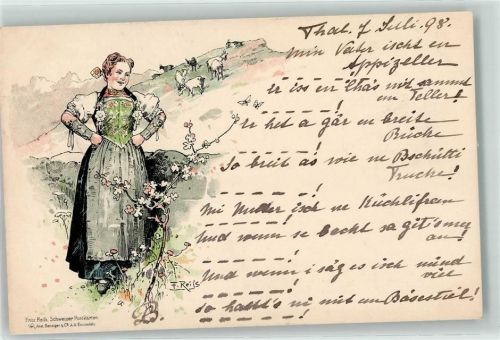 Thal, 7 Juli. 98.
Min Vater ischt en
Appizeller
Er iss en Chäs mit sammt
em Teller!
– – – – – – !
Er het a gar en breite
Rücke
– – – – – – !
So breit as wie ne Bschütti
Trucke!
– – – – – – !
Mi Mutter isch ne Küchlifrau
– – – – – – !
Und wenn se bacht sa git's mer
au!
– – – – – – !
Und wenn i säg es isch mind
viel
– – – – – – !
So haut's mi mit em Bäsestiel!
F. Reiss
Fritz Reiß, Schweizer Postkarten
Verl. Benziger & Co. A.G. Einsiedeln